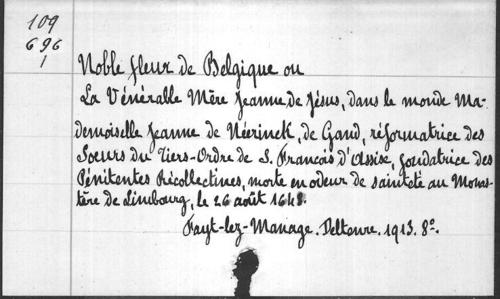 109
696
1
Noble fleur de Belgique ou
La Vénéralle Mère Jeanne de Jésus, dans le monde Ma-
demoiselle Jeanne de Néerinck, de Gand, réformatrice des
Soeurs du Tiers-Ordre de S. François d'Assise, fondatrice des
Pénitentes Récollectines, morte en odeur de sainteté au Monas-
tère de Limbourg, le 26 août 1648.
Fayt-lez-Manage. Deltenre. 1913. 8º.